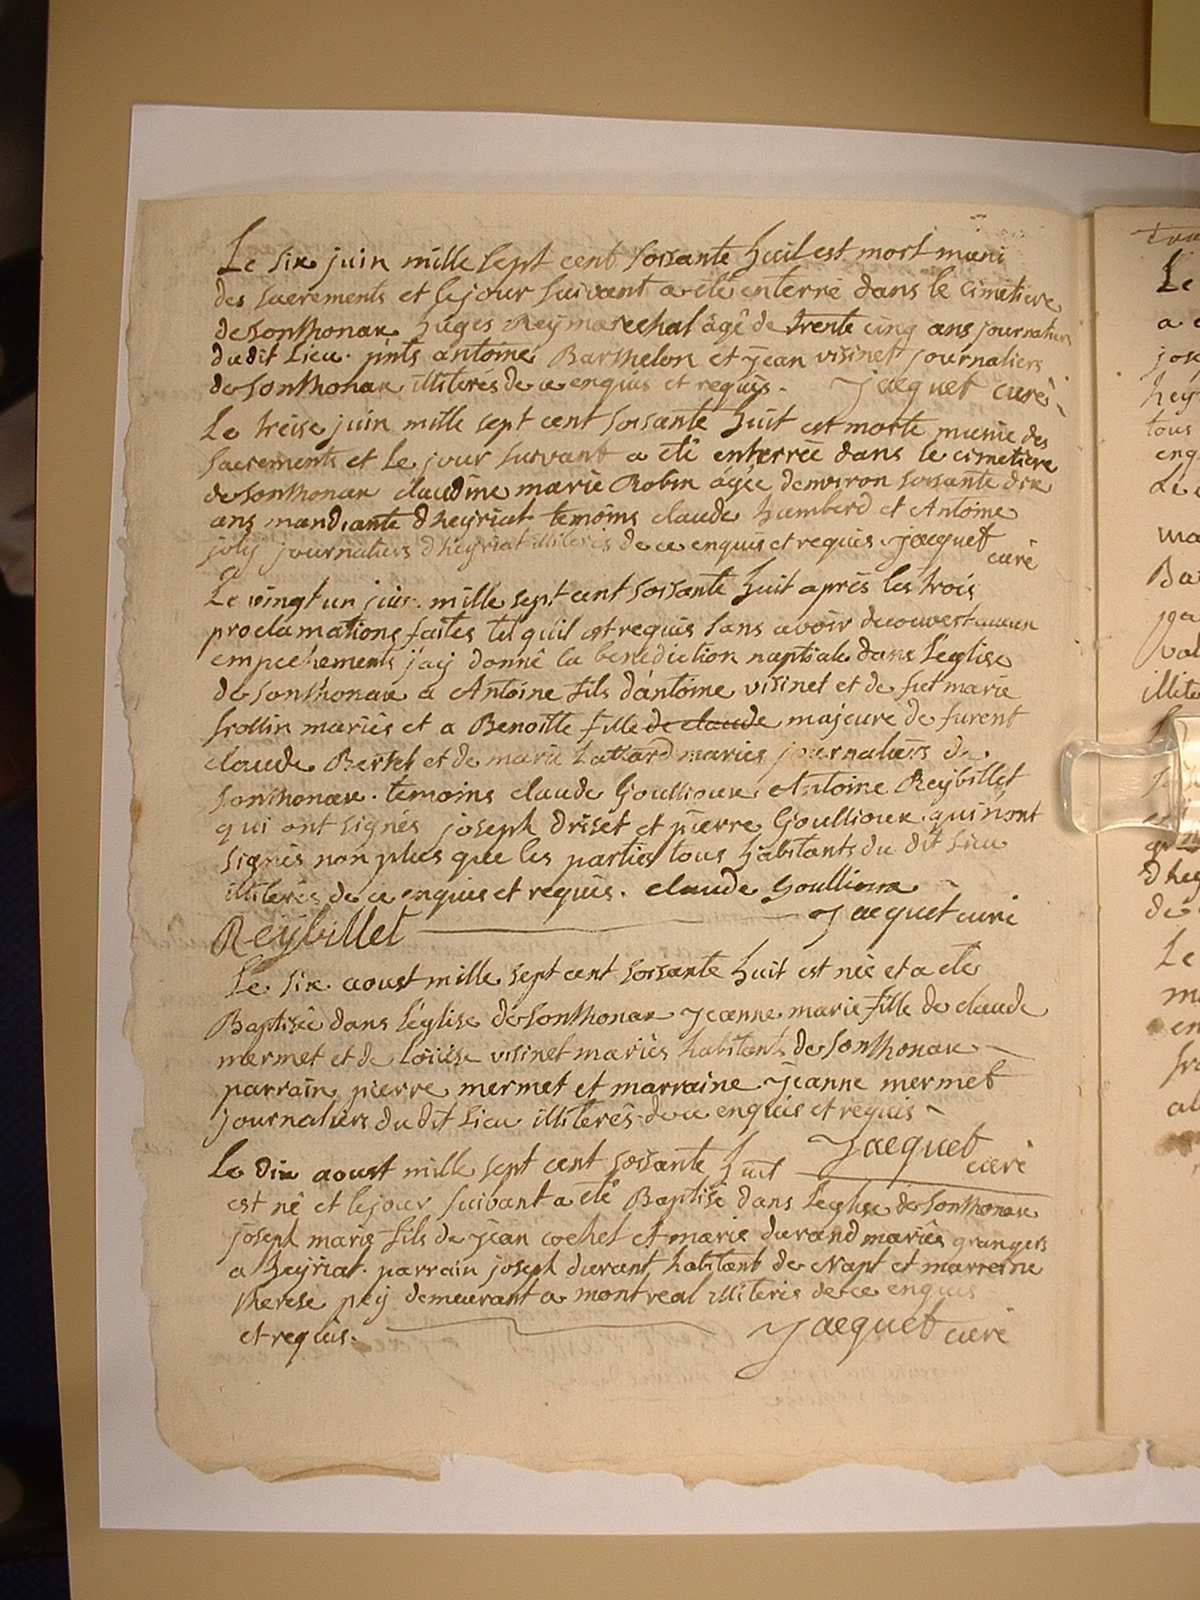 Le six juin mille sept cent soisante huit est mort muni
des sacrements et le jour suivant a eté enterré dans le cimetiere
de Sonthonax hugés Rey marechal âgé de trente cinq ans journalier
du dit Lieu. pnts antoine Barthelon et jean visinet journaliers
de Sonthonax illiterés de ce enquis et requis. Jacquet curé
Le treise juin mille sept cent soisante huit est morte munie des
sacrements et Le jour suivant a eté enterrée dans le cimetiere
de Sonthonax claudine marie Robin âgée denviron soisante dix
ans mandiante dheyriat temoins claude humberd et Antoine
joly journaliers dheyriat illiteris de ce enquis et requis. Jacquet curé
Le vingt un juin mille sept cent soisante huit aprés les trois
proclamations faites tel quil est requis sans avoir decouvert aucun
empechements j'ay donné la benediction nuptiale dans l'eglise
de Sonthonax a Antoine fils d'antoine visinet et de fut marie
frollin mariés et a Benoitte fille de claude majeure de furent
claude Bertet et de marie Lattard mariés journaliers de
Sonthonax. temoins claude Goullioux Antoine Reybillet
qui ont signés joseph driset et pierre Goullioux qui n'ont
signés non plus que les parties tous habitants du dit Lieu
illiterés de ce enquis et requis. claude Goullioux
Reybillet Jacquet curé
Le six aoust mille sept cent soisante huit est née et a eté
Baptisée dans l'eglise de Sonthonax jeanne marie fille de claude
mermet et de Loüise visinet mariés habitants de Sonthonax
parrain pierre mermet et marraine jeanne mermet
journaliers du dit Lieu illiterés de ce enquis et requis
Jacquet curé
Le dix aoust mille sept cent soisante huit
est né et le jour suivant a eté Baptisé dans l'eglise de Sonthonax
joseph marie fils de jean cochet et marie durand mariés grangers
a heyriat. parrain joseph durant habitant de Napt et marreine
therese pey demeurant a montreal illiteris de ce enquis
et requis. Jacquet curé